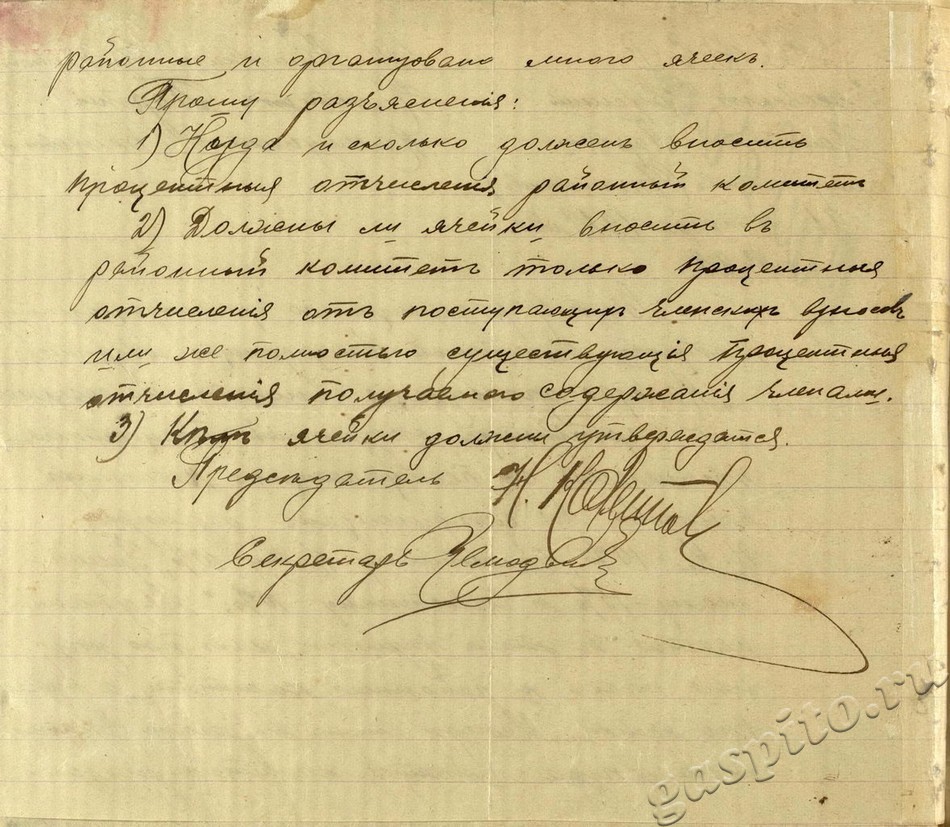 районные и организовано много ячеек.
Прошу разъяснения:
1) Когда и сколько должен вносить
процентныя отчисления районный комитет
2) Должны ли ячейки вносить въ
районный комитетъ только процентныя
отчисления отъ поступающих членских взносовъ
или же полностью существующія процентныя
отчисленія получаемого содержанія членами.
3) ячейки должны утверждатся.
Председатель Н.
Секретарь
gaspito.ru